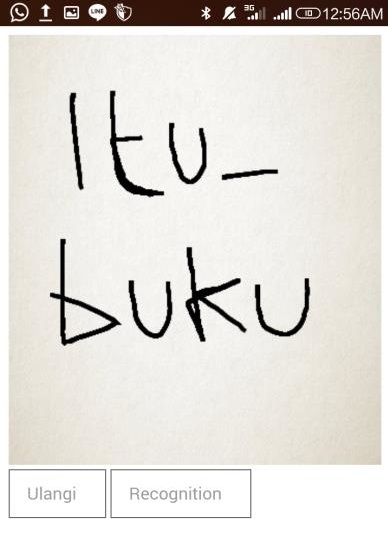 3G
10
12:56AM
Itu_
buku
Ulangi
Recognition